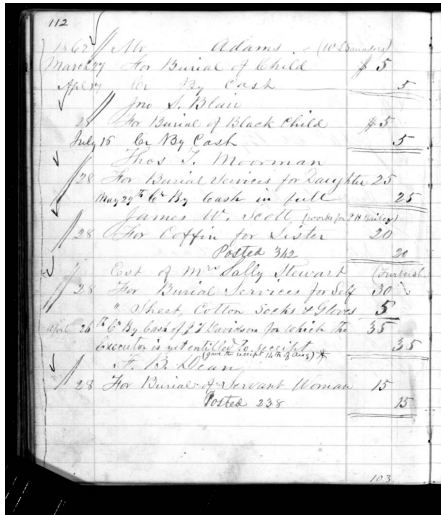 112
1862 Mr Adams
March 27 For Burial of Child $ 5
Apl 17 Cr By Cash 5
Jno S. Blair
28 For Burial of Black Child $ 5
July 16 Cr By Cash 5
Thos T. Moorman
28 For Burial Services for Daughter 25
May 29th Cr By Cash in full 25
James W. Scott (works for
28 For Coffin for Sister 20
Posted 342 20
Est of Mrs Sally Stewart
28 For Burial Services for Self 30
" Sheet, Cotton Socks & Gloves 5
April 26th Cr By Cash of J T Davidson for which the 35
Executor is yet entitled to receipt 35
(gave the receipt 14th of Aug)
F. B. Dean
28 For Burial of Servant Woman 15
Posted 238 15
103